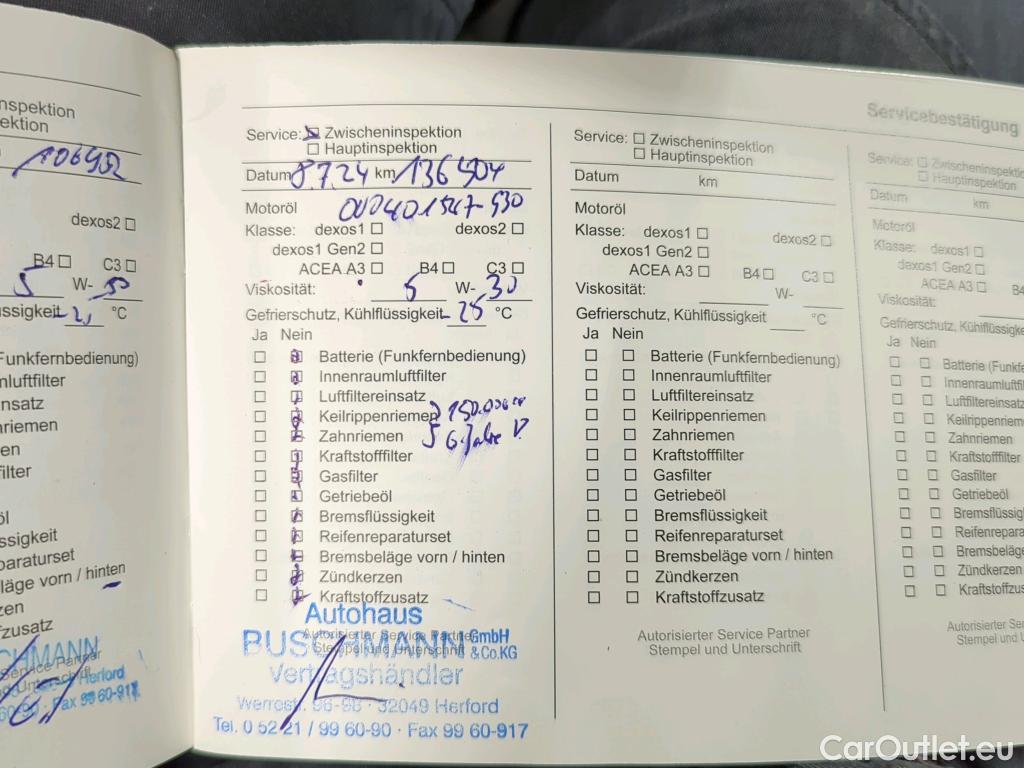 nspektion
ektion
106902
dexos2
B4 C3
5 W-30
üssigkeit °C
Funkfernbedienung)
nluftfilter
insatz
riemen
en
filter
öl
ssigkeit
paraturset
eläge vorn / hinten
zen
fzusatz
CHMANN
Service Partner
Herford
60-90 · Fax 99 60-917
Servicebestätigung
Service: Zwischeninspektion
Hauptinspektion
Datum 8.7.24 km 136904
Motoröl
Klasse: dexos1 dexos2
dexos1 Gen2
ACEA A3 B4 C3
Viskosität: 5 W- 30
Gefrierschutz, Kühlflüssigkeit - 25 °C
Ja Nein
Batterie (Funkfernbedienung)
Innenraumluftfilter
Luftfiltereinsatz
Keilrippenriemen
Zahnriemen
Kraftstofffilter
Gasfilter
Getriebeöl
Bremsflüssigkeit
Reifenreparaturset
Bremsbeläge vorn / hinten
Zündkerzen
Kraftstoffzusatz
Autorisierter Service Partner
Stempel und Unterschrift
Autohaus
BUSCHMANN GmbH & Co.KG
Vertragshändler
Werrestr. 96-98 · 32049 Herford
Tel. 0 52 21 / 99 60-90 · Fax 99 60-917
Service: Zwischeninspektion
Hauptinspektion
Datum km
Motoröl
Klasse: dexos1 dexos2
dexos1 Gen2
ACEA A3 B4 C3
Viskosität: W-
Gefrierschutz, Kühlflüssigkeit °C
Ja Nein
Batterie (Funkfernbedienung)
Innenraumluftfilter
Luftfiltereinsatz
Keilrippenriemen
Zahnriemen
Kraftstofffilter
Gasfilter
Getriebeöl
Bremsflüssigkeit
Reifenreparaturset
Bremsbeläge vorn / hinten
Zündkerzen
Kraftstoffzusatz
Autorisierter Service Partner
Stempel und Unterschrift
Service: Zwischeninspektio
Hauptinspektion
Datum km
Motoröl
Klasse: dexos1
dexos1 Gen2
ACEA A3 B4
Viskosität:
Gefrierschutz, Kühlflüssigke
Ja Nein
Batterie (Funkfe
Innenraumluftfilte
Luftfiltereinsatz
Keilrippenriemen
Zahnriemen
Kraftstofffilter
Gasfilter
Getriebeöl
Bremsflüssig
Reifenrepara
Bremsbeläge
Zündkerzen
Kraftstoffzus
Autorisierter Se
Stempel und
CarOutlet.eu